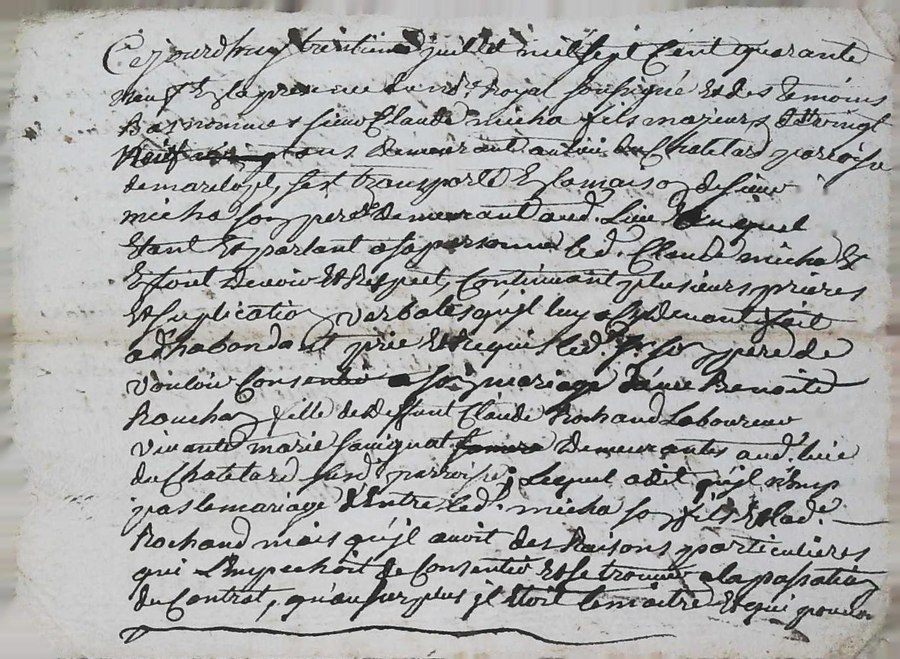 Cejourdhuy trentieme juillet mil sept cent quarante
neuf En la presence du not.e Royal soussigné Et des temoins
Bas nommes sieur Claude micha fils majeur de vingt
neuf ans demeurant au lieu du Chatelard parroisse
de s'est transporté En la maison de sieur
micha son pere demeurant aud. Lieu auquel
Etant Et parlant a sa personne led. Claude micha Et
Effont devoir Et Respect, Continuant plusieurs prieres
Et suplication verbales qu'jl luy a cy devant fait
adhabondant prie Et Requis led. sr. son pere de
vouloir Consentir a son mariage Benoite
Rochan fille de deffunt Claude Rochand Laboureur
vivante marie demeurantes aud. lieu
du Chatelard susd. parroisse, Lequel a dit qu'jl n'Emp
pas le mariage d'Entre led. micha son fils Et lad.
Rochand mais qu'jl avoit des Raisons particulieres
qui L'Empechoit de Consentir Et se trouver a la passation
du Contrat, qu'au surplus jl Etoit le maitre Et qui